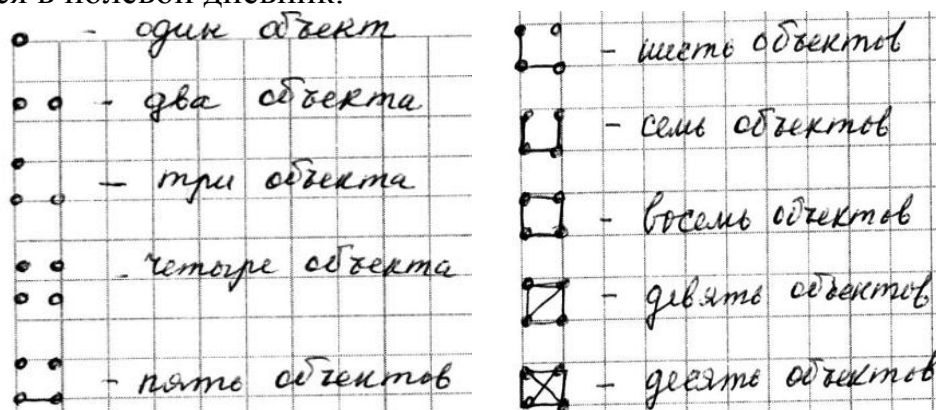 ся в полевой дневник.
- один объект
- два объекта
- три объекта
- четыре объекта
- пять объектов
- шесть объектов
- семь объектов
- восемь объектов
- девять объектов
- десять объектов